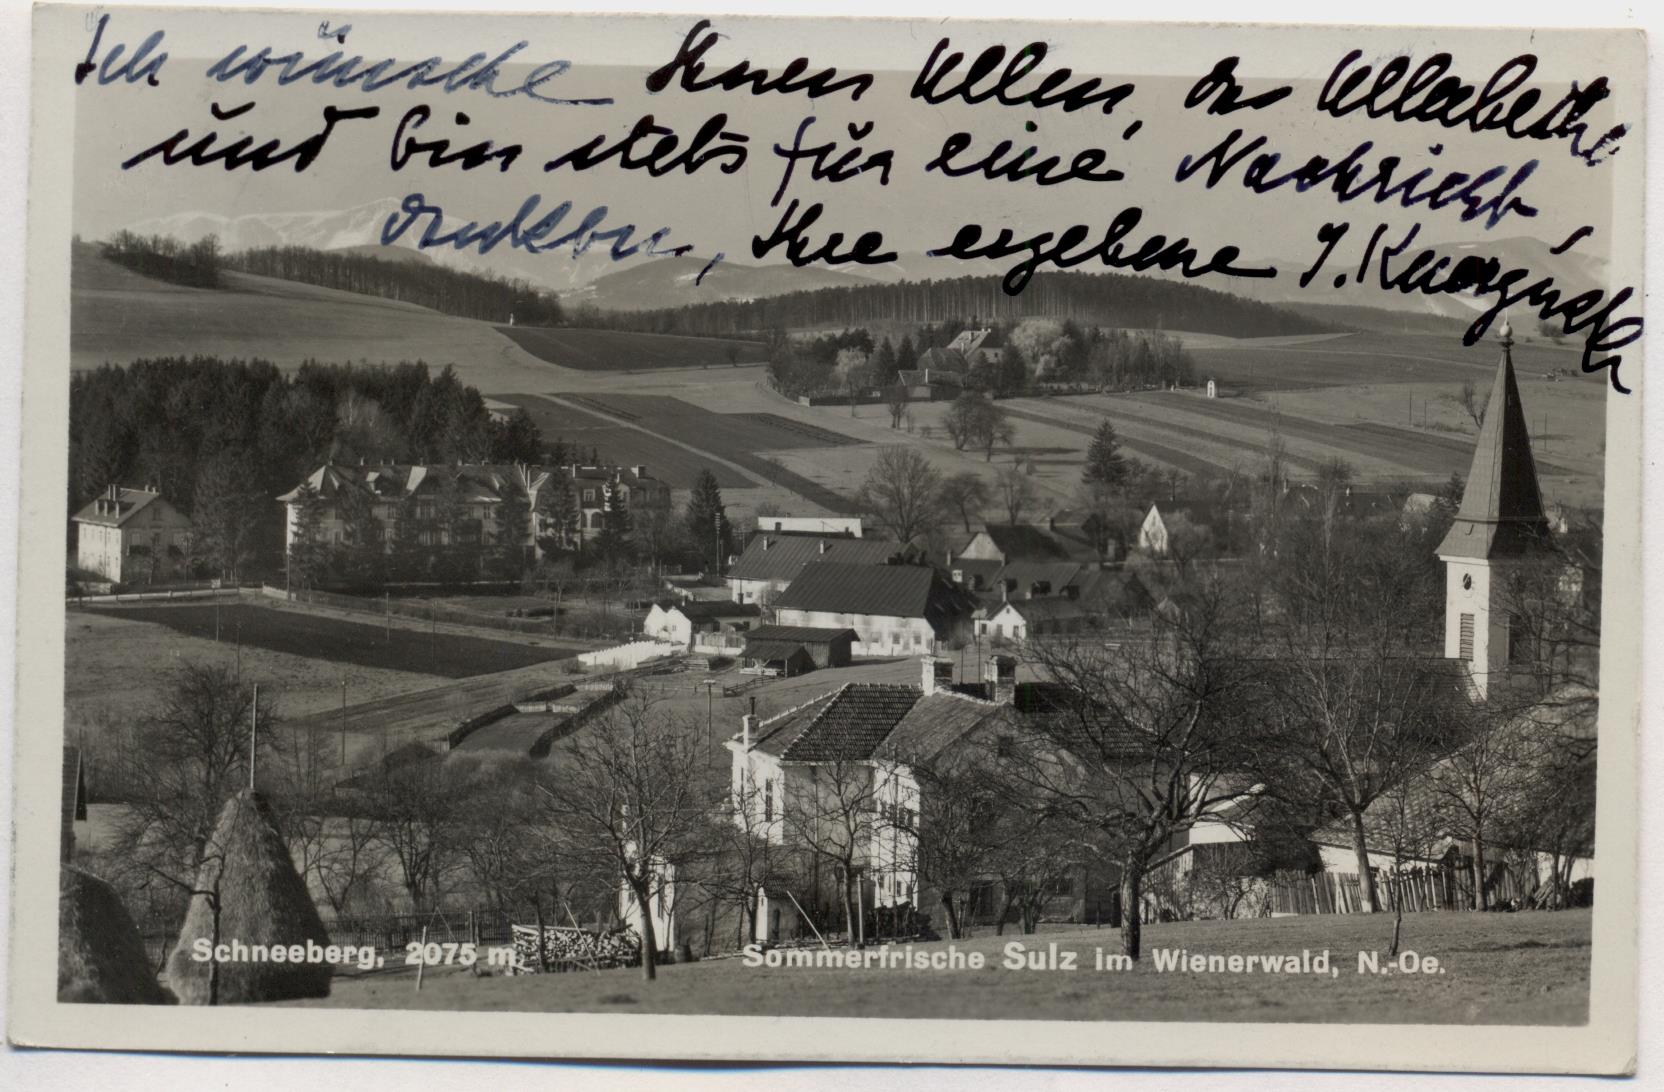 Ich wünsche Ihnen Allen, das Allerbeste
und bin stets für eine Nachricht
dankbar, Ihre ergebene J.
Schneeberg, 2075 m. Sommerfrische Sulz im Wienerwald, N.-Oe.